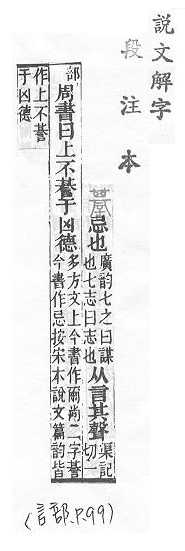 說文解字
段注本
忌也廣韵七之曰謀
也七志曰志也从言其聲渠記
切一
部周書曰上不諅于凶德多方文上今書作爾尚二字諅
今書作忌按宋本說文篇韵皆
作上不諅
于凶德
(言部.P.99)